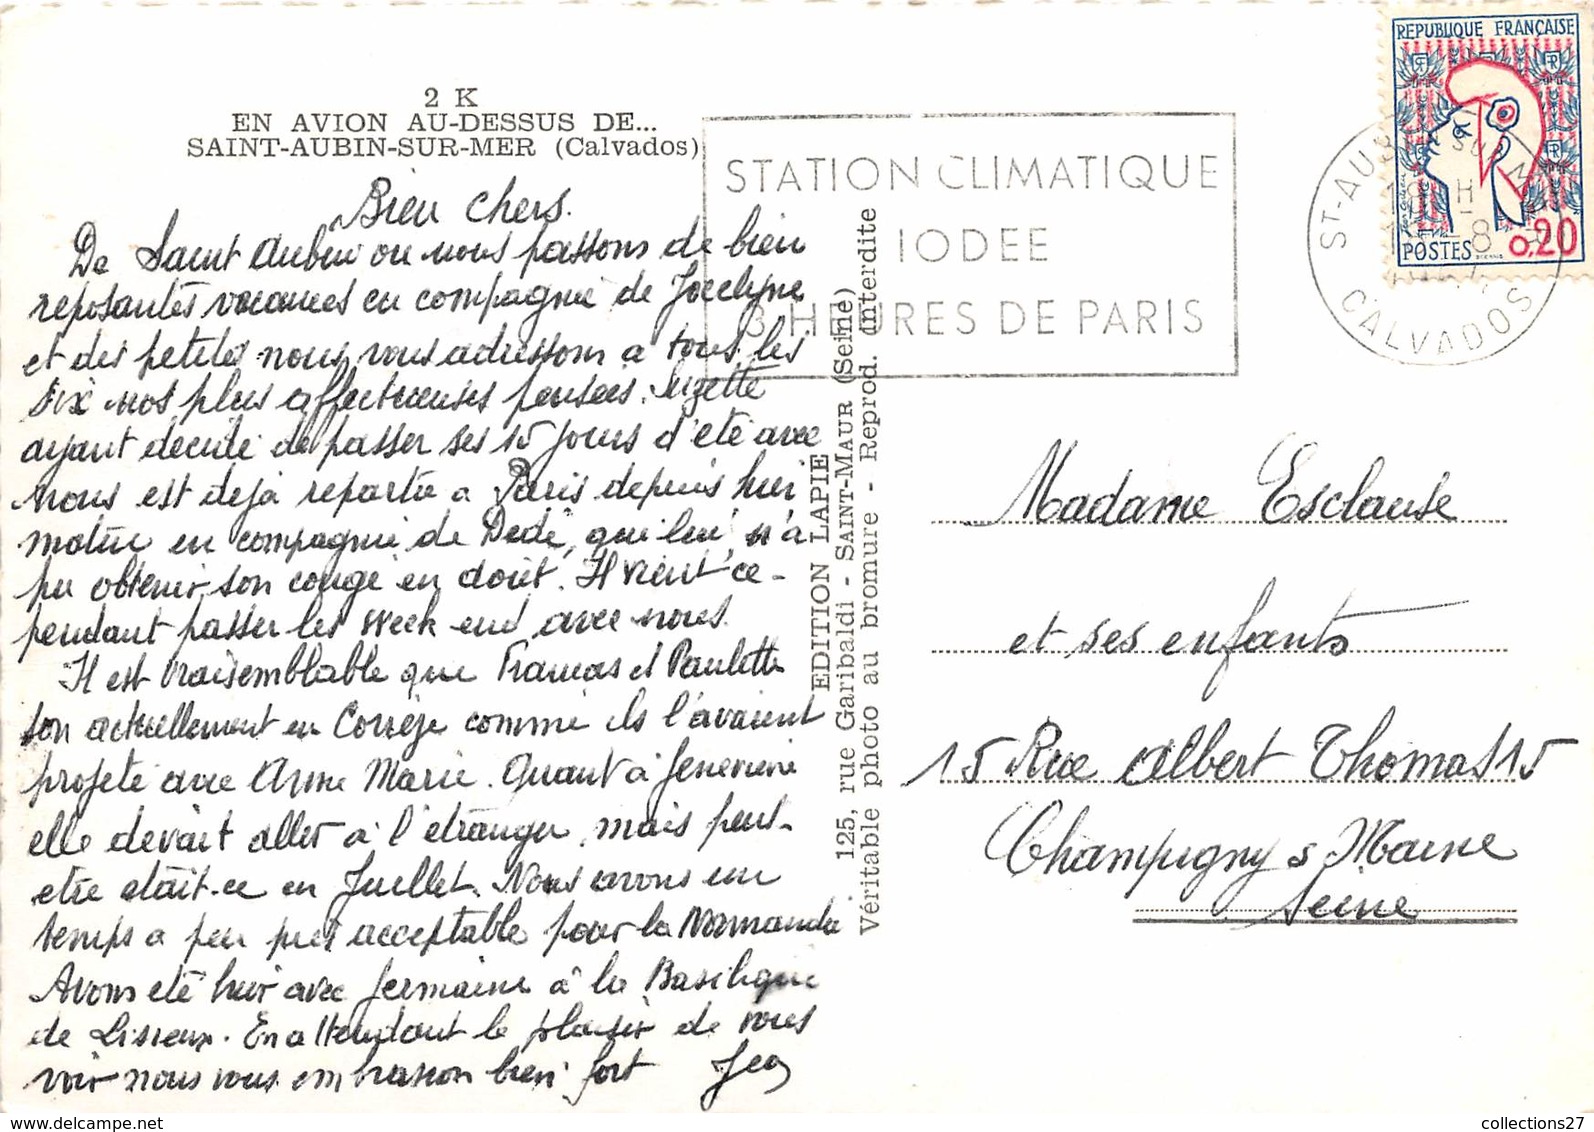 2 K
EN AVION AU-DESSUS DE...
SAINT-AUBIN-SUR-MER (Calvados)
Bien chers.
De Saint Aubin ou nous passons de bien
reposantes vacances en compagnie de Jocelyne
et des petites nous vous adressons a tous les
six nos plus affectueuses pensées. Suzette
ayant décidé de passer ses 15 jours d'été avec
nous est déjà repartie a Paris depuis hier
matin en compagnie de Dédé, qui lui, n'a
pu obtenir son congé en août. Il vient ce-
pendant passer les week end avec nous.
Il est vraisemblable que Francas et Paulette
son actuellement en Corrèze comme ils l'avaient
projeté avec Anne Marie. Quant à Geneviève
elle devait aller à l'étranger, mais peut-
etre était-ce en Juillet. Nous avons un
temps a peu près acceptable pour la Normandie
Avons été hier avec Germaine à la Basilique
de Lisieux. En attendant le plaisir de vous
voir nous vous embrassons bien fort
EDITION LAPIE
125, rue Garibaldi - SAINT-MAUR (Seine)
Véritable photo au bromure - Reprod. interdite
STATION CLIMATIQUE
IODEE
3 HEURES DE PARIS
REPUBLIQUE FRANÇAISE
POSTES 0,20
CALVADOS
Madame Esclause
et ses enfants
15 Rue Albert Thomas 15
Champigny s Marne
Seine
collections27